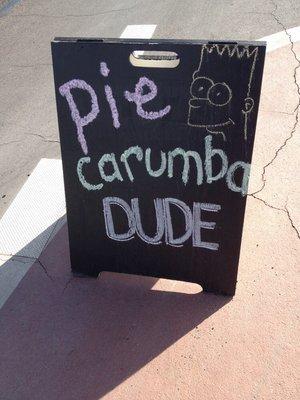 pie
carumba
DUDE